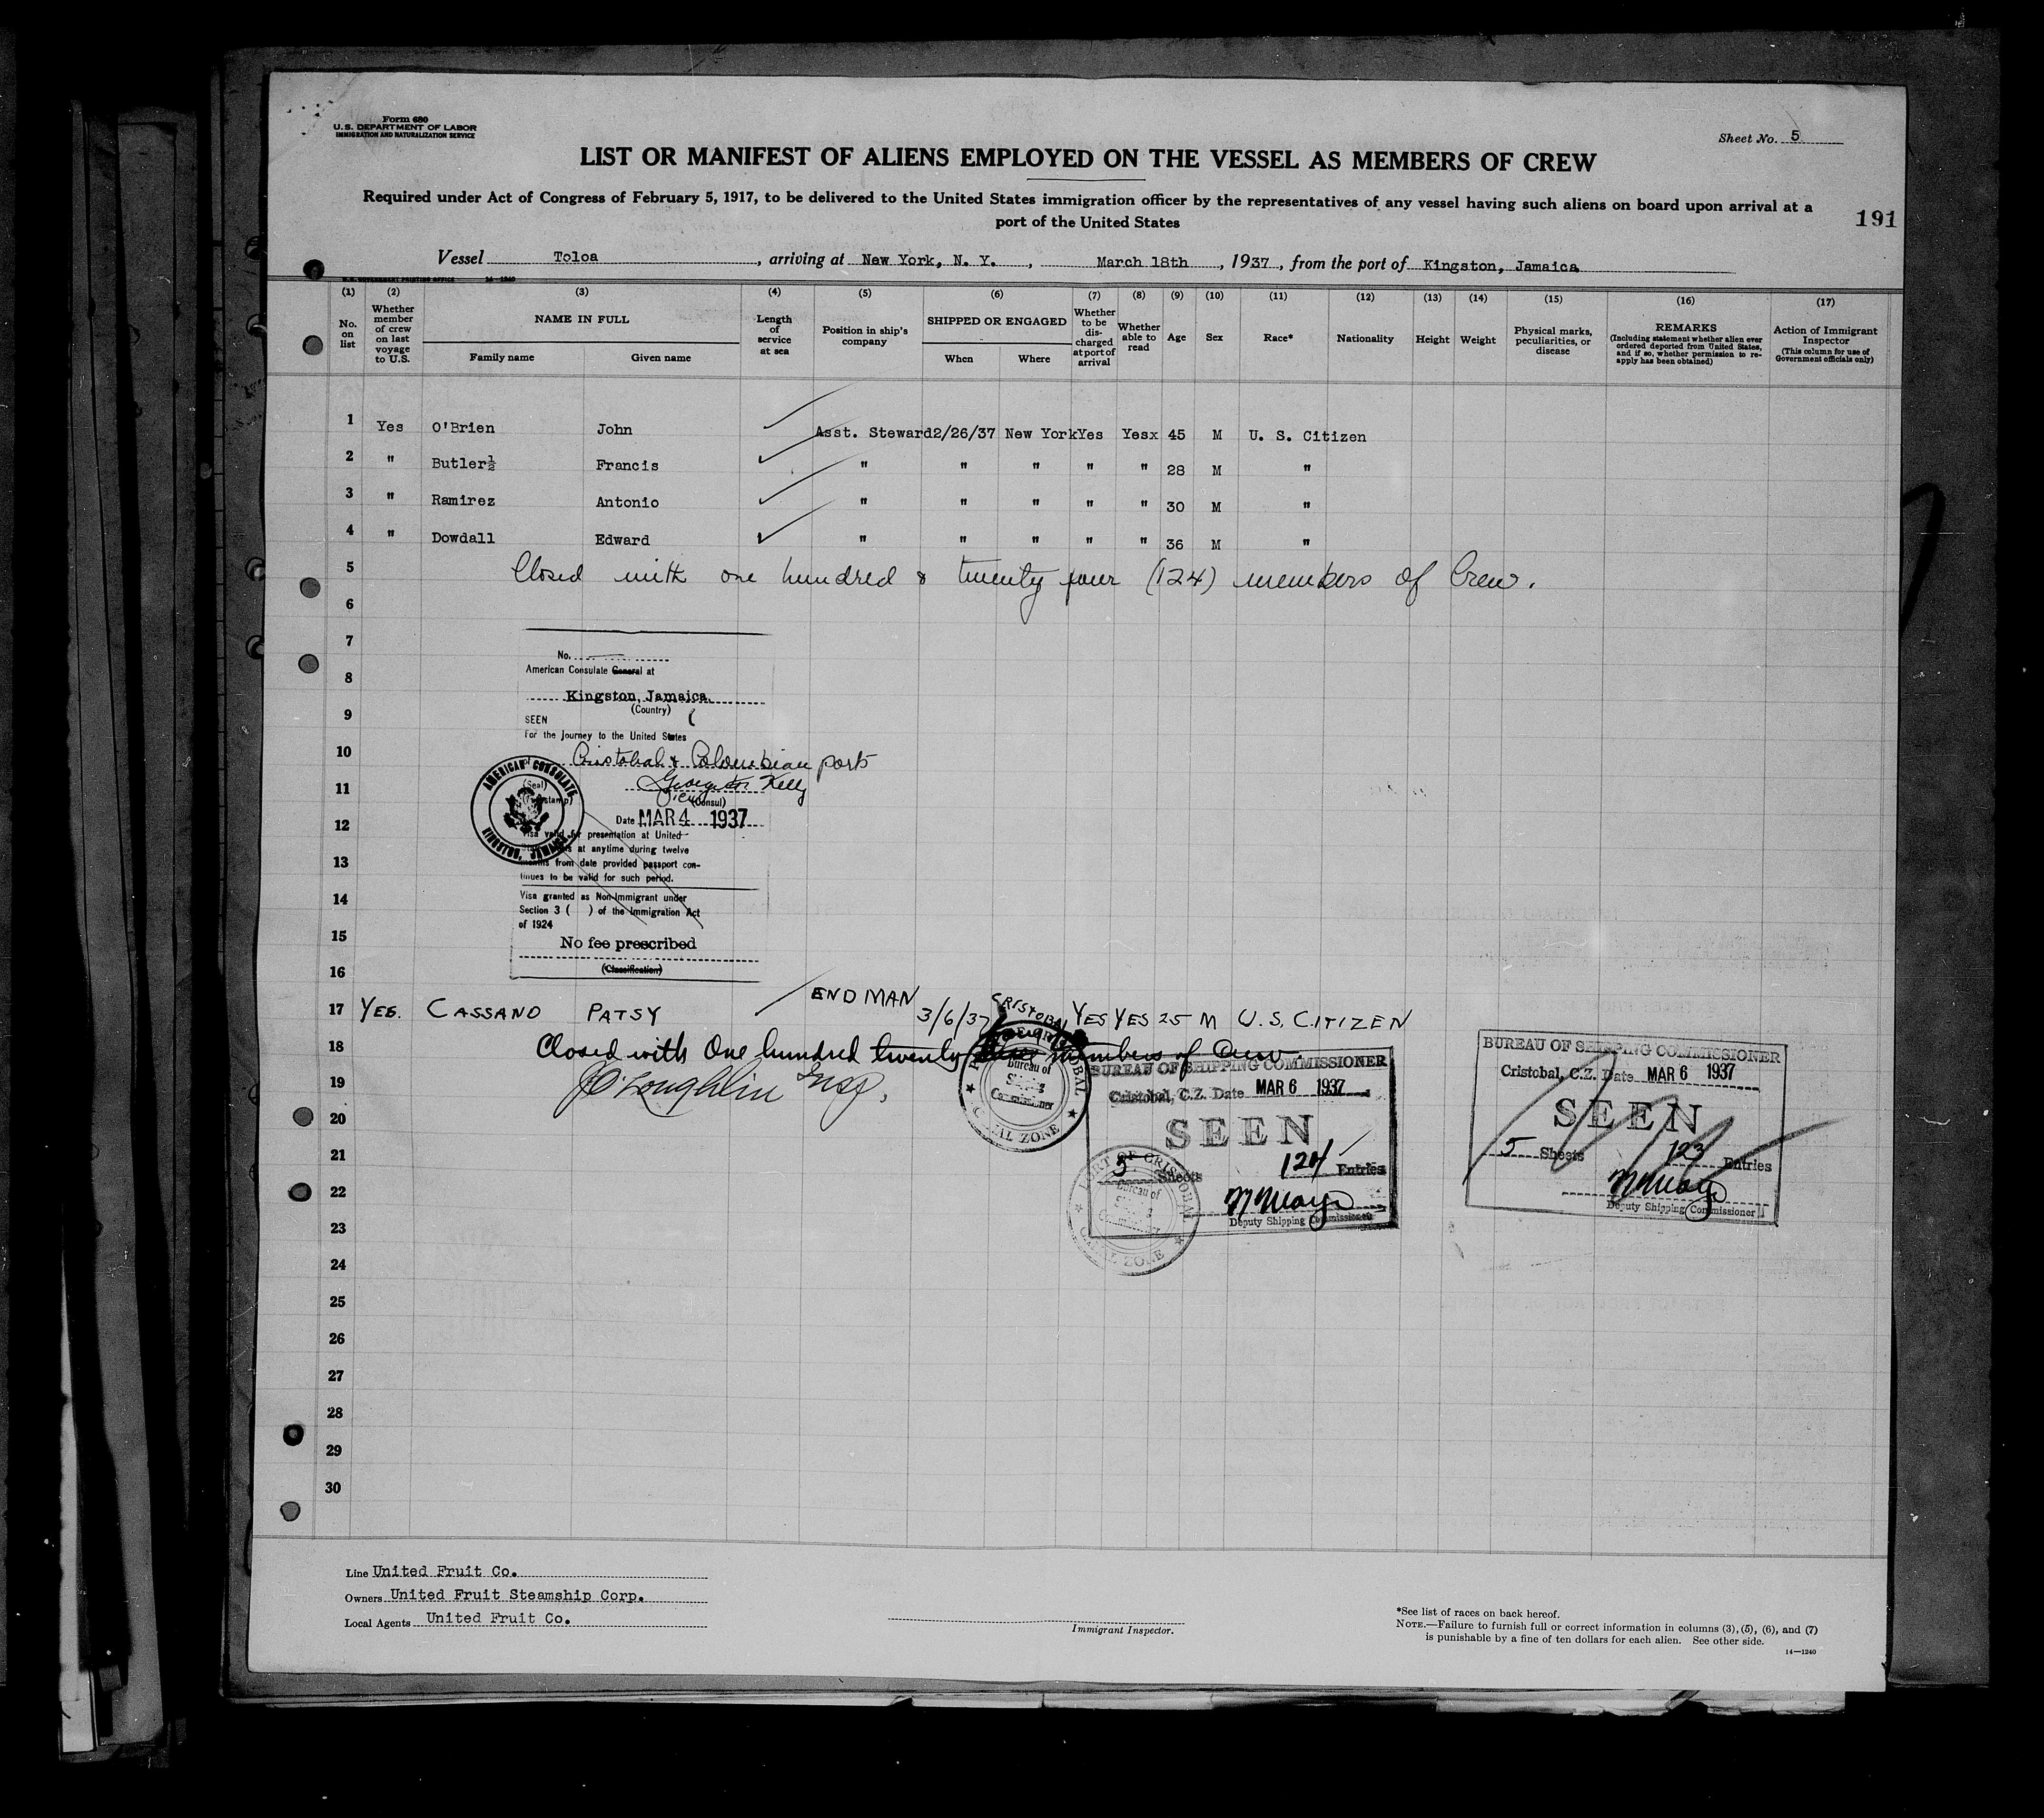 Form 680
U.S. DEPARTMENT OF LABOR
IMMIGRATION AND NATURALIZATION SERVICE
Sheet No. 5
LIST OR MANIFEST OF ALIENS EMPLOYED ON THE VESSEL AS MEMBERS OF CREW
Required under Act of Congress of February 5, 1917, to be delivered to the United States immigration officer by the representatives of any vessel having such aliens on board upon arrival at a
port of the United States
191
Vessel Toloa, arriving at New York, N. Y., March 18th, 1937, from the port of Kingston, Jamaica
U.S. GOVERNMENT PRINTING OFFICE 14-1240
(1) (2) (3) (4) (5) (6) (7) (8) (9) (10) (11) (12) (13) (14) (15) (16) (17)
No. on list
Whether member of crew on last voyage to U.S.
NAME IN FULL
Family name
Given name
Length of service at sea
Position in ship's company
SHIPPED OR ENGAGED
When
Where
Whether to be discharged at port of arrival
Whether able to read
Age
Sex
Race*
Nationality
Height
Weight
Physical marks, peculiarities, or disease
REMARKS
(Including statement whether alien ever ordered deported from United States, and if so, whether permission to reapply has been obtained)
Action of Immigrant Inspector
(This column for use of Government officials only)
1 Yes O'Brien John Asst. Steward 2/26/37 New York Yes Yesx 45 M U. S. Citizen
2 " Butler½ Francis " " " " " 28 M "
3 " Ramirez Antonio " " " " " 30 M "
4 " Dowdall Edward " " " " " 36 M "
5 Closed with one hundred & twenty four (124) members of Crew.
6
7
No.
American Consulate General at
8
Kingston, Jamaica.
(Country)
9
SEEN
For the Journey to the United States
10
Cristobal & Colombian ports
AMERICAN CONSULATE
KINGSTON, JAMAICA
(Seal)
11
Kelly
(Consul)
12
Date MAR 4 1937
Visa valid for presentation at United
at anytime during twelve
13
months from date provided passport con-
tinues to be valid for such period.
14
Visa granted as Non-Immigrant under
Section 3 ( ) of the Immigration Act
of 1924
15
No fee prescribed
16
(Classification)
17 YES. CASSANO PATSY ENDMAN 3/6/37 CRISTOBAL YES YES 25 M U.S. CITIZEN
18 Closed with One hundred twenty three members of Crew.
19 O'Loughlin
20
21
22
23
24
25
26
27
28
29
30
PORT OF CRISTOBAL
Bureau of
Shipping
Commissioner
CANAL ZONE
BUREAU OF SHIPPING COMMISSIONER
Cristobal, C.Z. Date MAR 6 1937
SEEN
5 Sheets 124 Entries
Deputy Shipping Commissioner
PORT OF CRISTOBAL
Bureau of
Shipping
Commissioner
CANAL ZONE
BUREAU OF SHIPPING COMMISSIONER
Cristobal, C.Z. Date MAR 6 1937
SEEN
5 Sheets 123 Entries
Deputy Shipping Commissioner
Line United Fruit Co.
Owners United Fruit Steamship Corp.
Local Agents United Fruit Co.
Immigrant Inspector.
*See list of races on back hereof.
NOTE.—Failure to furnish full or correct information in columns (3), (5), (6), and (7)
is punishable by a fine of ten dollars for each alien. See other side.
14—1240